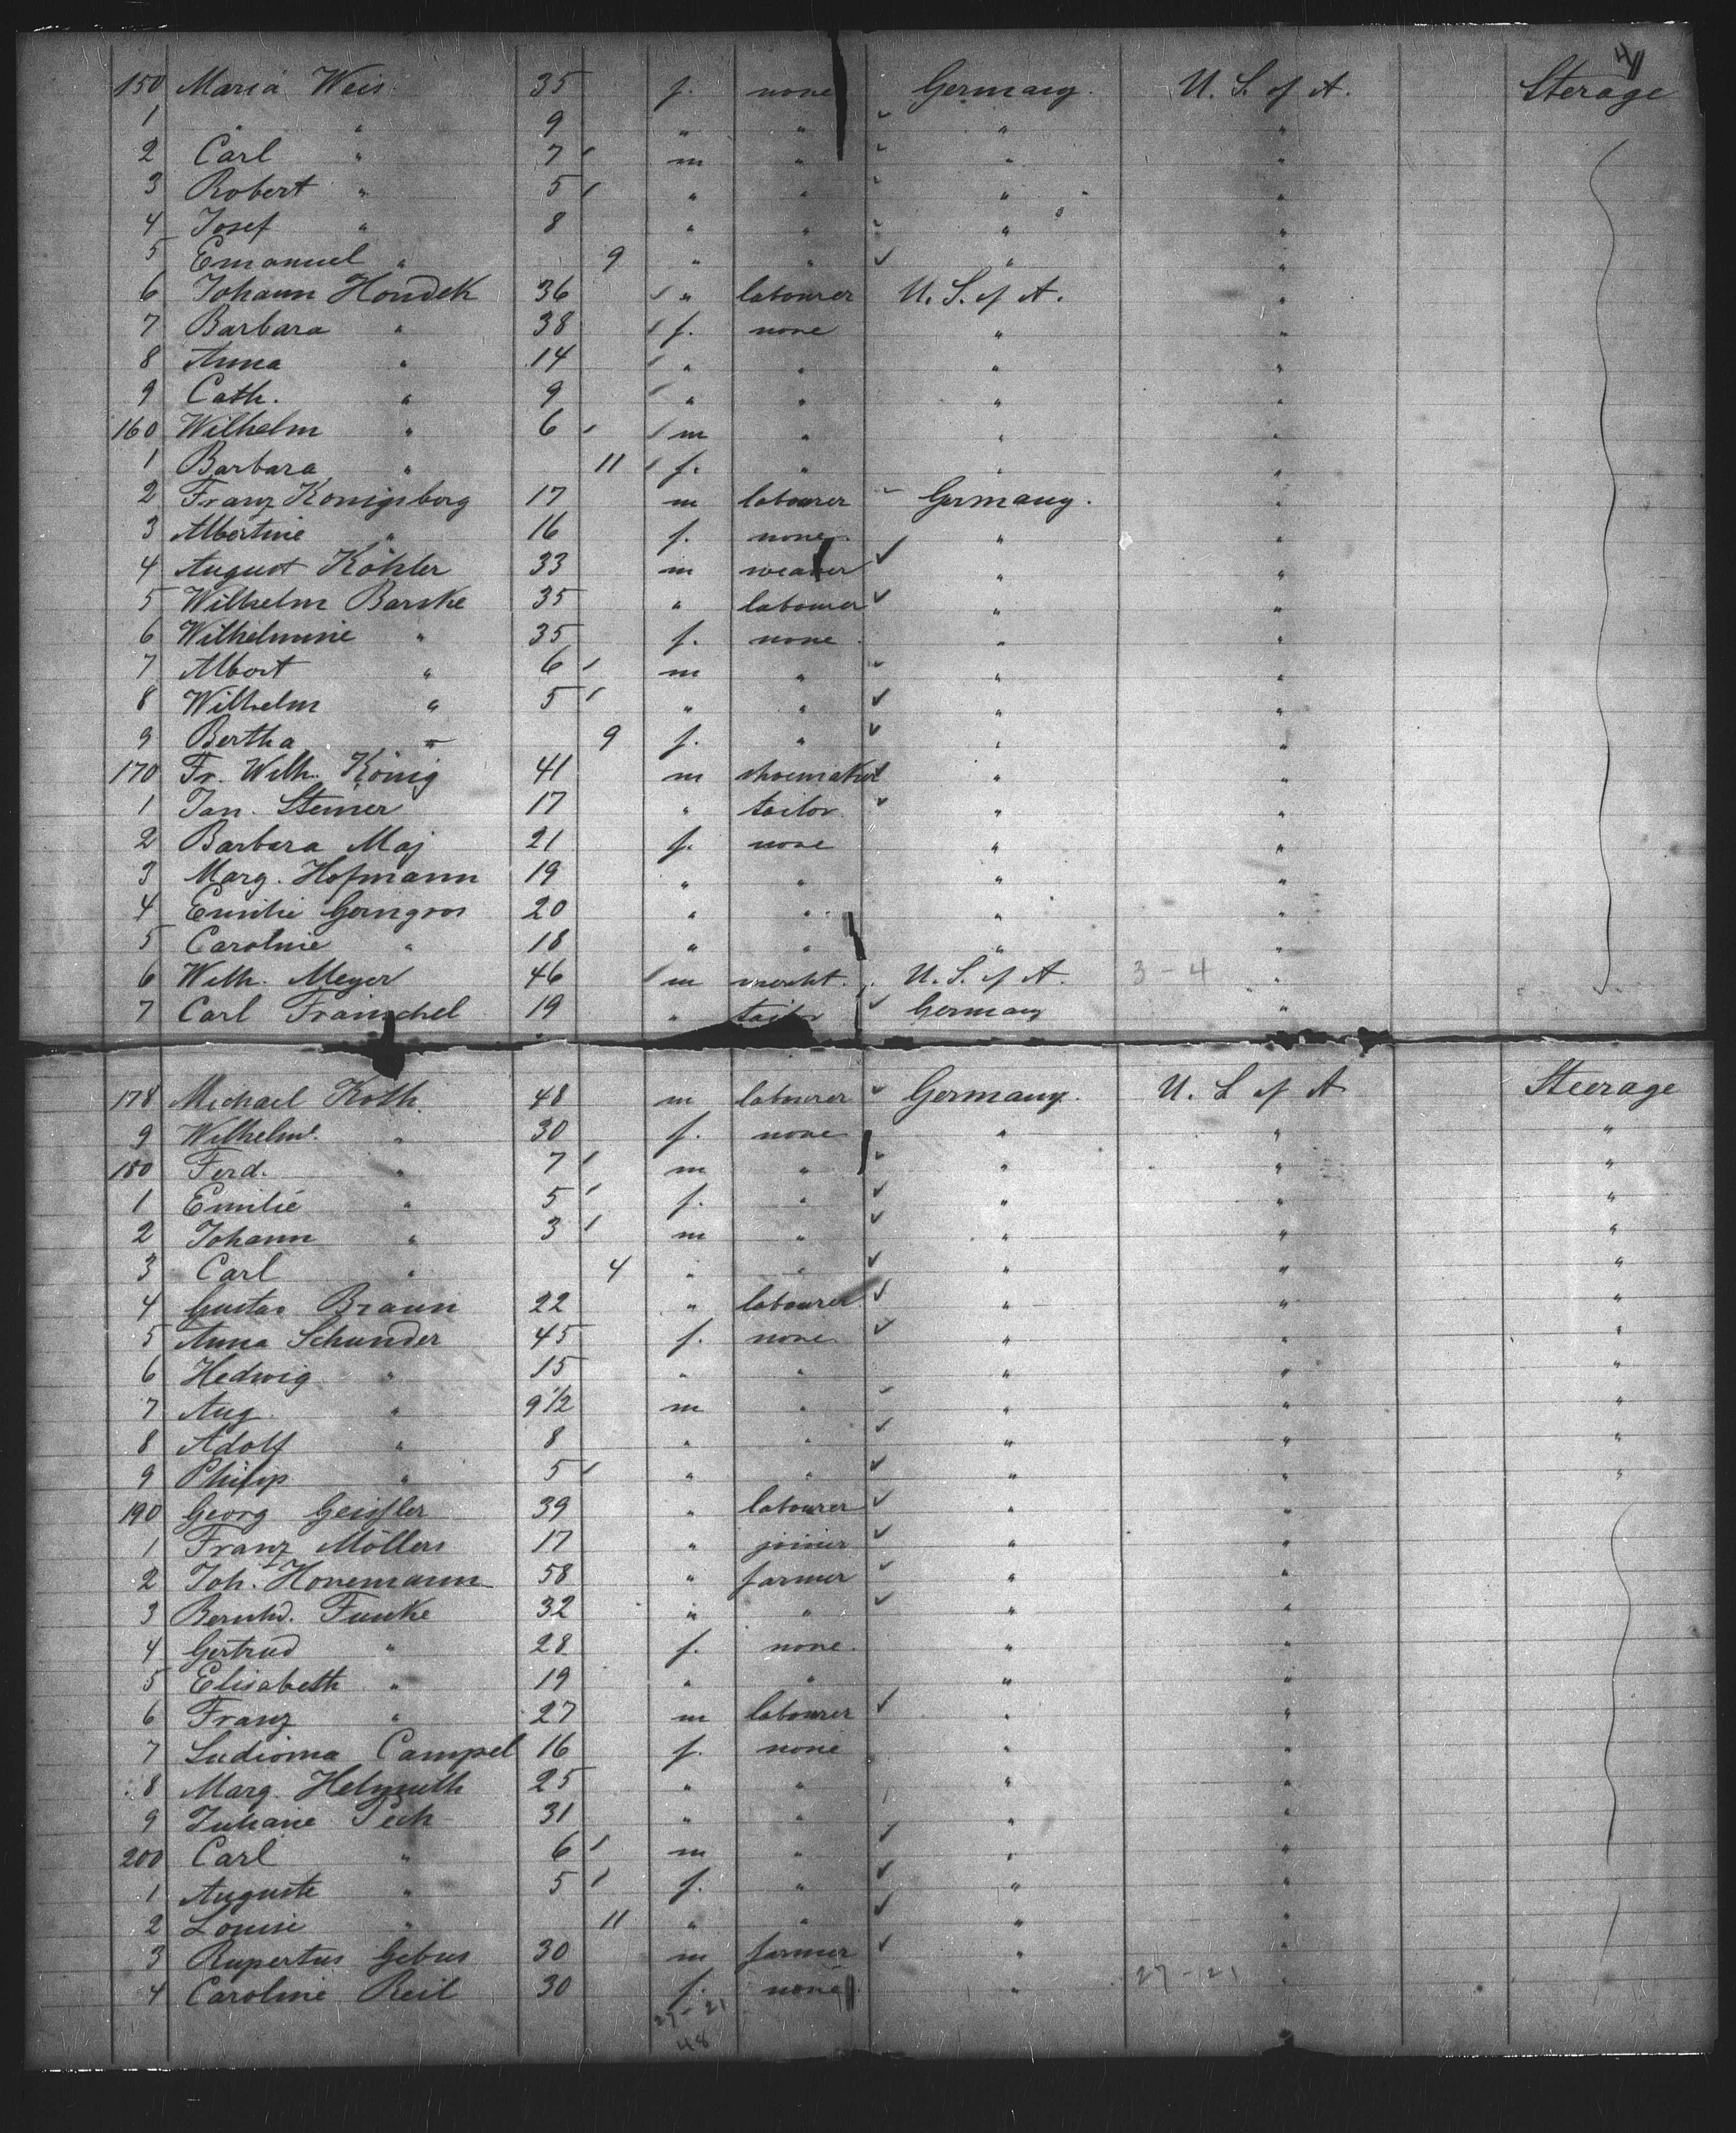 4
150 Maria Weis 35 f. none Germany. U. S. of A. Sterage
1 " " 9 " " " "
2 Carl " 7 m " " "
3 Robert " 5 " " " "
4 Josef " 8 " " " "
5 Emanuel " 9 " " " "
6 Johann Hondek 36 " labourer U. S. of A. "
7 Barbara " 38 f. none " "
8 Anna " 14 " " " "
9 Cath. " 9 " " " "
160 Wilhelm " 6 m " " "
1 Barbara " 11 f. " " "
2 Franz Konigsberg 17 m labourer Germany. "
3 Albertine " 16 f. none " "
4 August Köhler 33 m weaver " "
5 Wilhelm Barske 35 " labourer " "
6 Wilhelmine " 35 f. none " "
7 Albert " 6 m " " "
8 Wilhelm " 5 " " " "
9 Bertha " 9 f. " " "
170 Fr. Wilh. König 41 m shoemaker " "
1 Jan. Steiner 17 " tailor " "
2 Barbara Maj 21 f. none " "
3 Marg. Hofmann 19 " " " "
4 Emilie Gerngros 20 " " " "
5 Caroline " 18 " " " "
6 Wilh. Meyer 46 m mercht. U. S. of A. 3-4 "
7 Carl Fraischel 19 " tailor Germany "
178 Michael Koth. 48 m labourer Germany. U. S of A Steerage
9 Wilhelme. " 30 f. none " " "
180 Ferd. " 7 m " " " "
1 Emilie " 5 f. " " " "
2 Johann " 3 m " " " "
3 Carl " 4 " " " " "
4 Gustav Braun 22 " labourer " " "
5 Anna Schunder 45 f. none " " "
6 Hedwig " 15 " " " " "
7 Aug. " 9 1/2 m " " " "
8 Adolf " 8 " " " " "
9 Philip " 5 " " " " "
190 Georg Geissler 39 " labourer " "
1 Franz Möllers 17 " joiner " "
2 Joh. Honemann 58 " farmer " "
3 Bernhd. Funke 32 " " " "
4 Gertrud " 28 f. none. " "
5 Elisabeth " 19 " " " "
6 Franz " 27 m labourer " "
7 Ludioma Campel 16 f. none " "
8 Marg. Helmuth 25 " " " "
9 Juliane Pech 31 " " " "
200 Carl " 6 m " " "
1 Auguste " 5 f. " " "
2 Louise " 11 " " " "
3 Rupertus Gebus 30 m farmer " "
4 Caroline Reil 30 f. none " 27-21 "
27-21
48